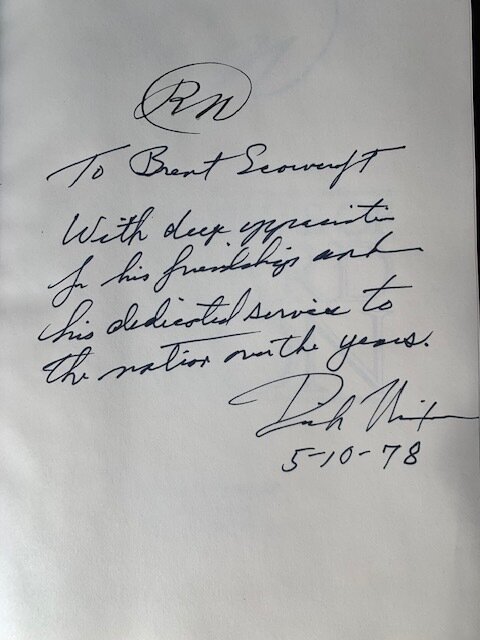 RN
To Brent Scowcroft
With deep appreciation
for his friendship and
his dedicated service to
the nation over the years.
Dick Nixon
5-10-78